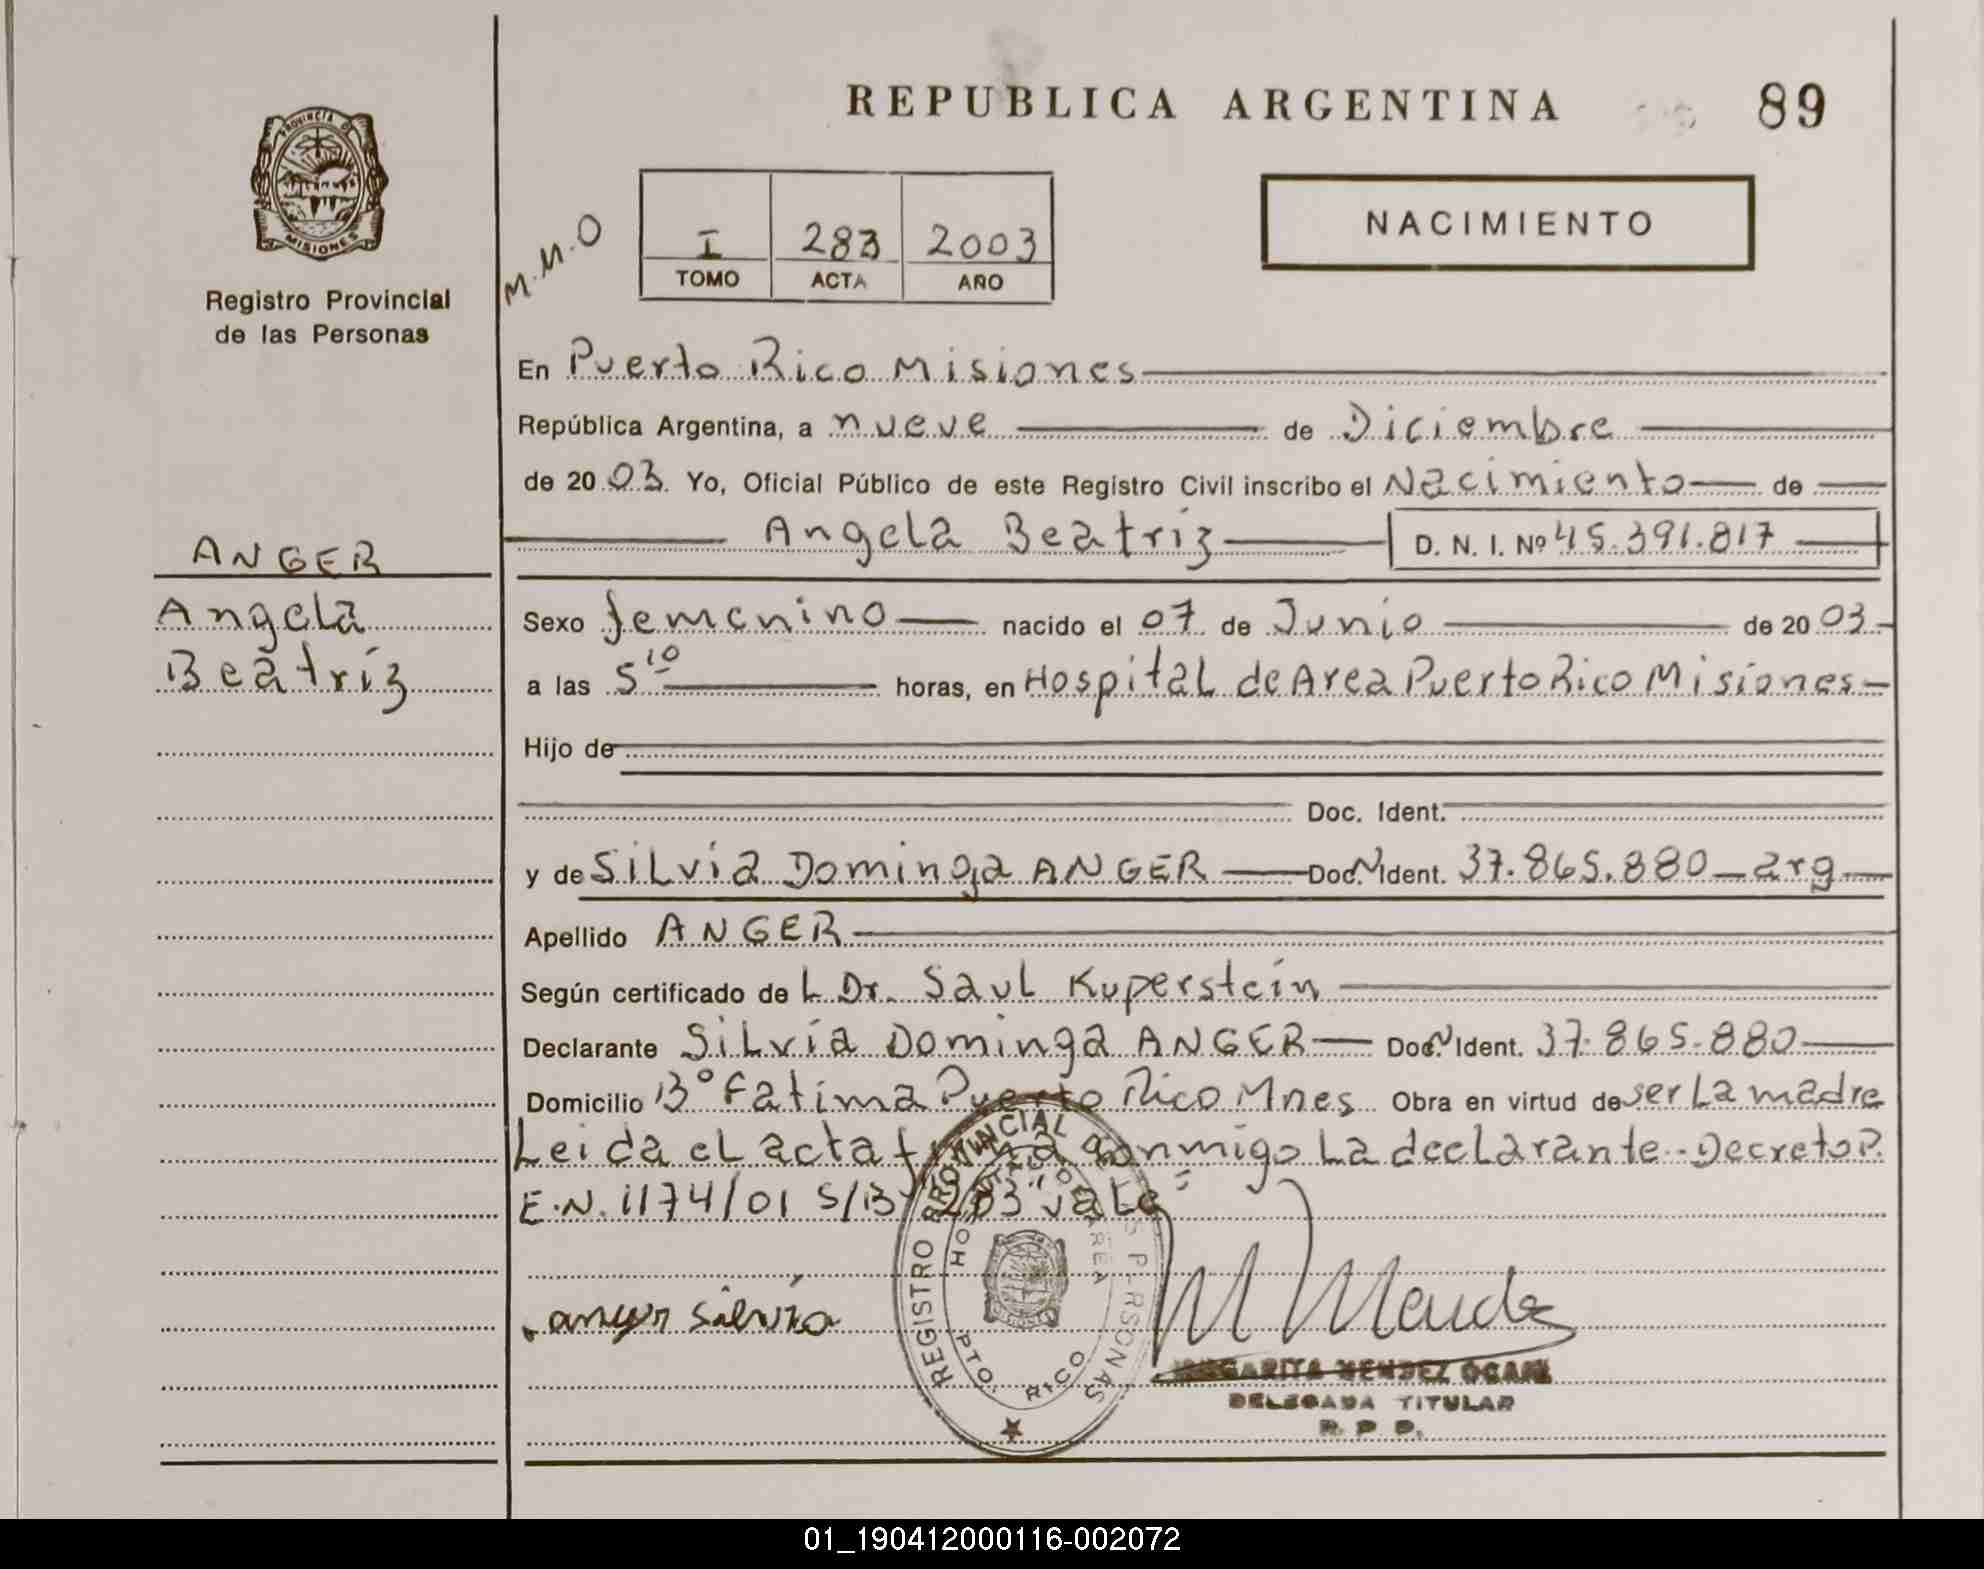 REPUBLICA ARGENTINA
89
PROVINCIA DE
MISIONES
Registro Provincial
de las Personas
M.M.O
I 283 2003
TOMO ACTA AÑO
NACIMIENTO
En Puerto Rico Misiones
República Argentina, a nueve de Diciembre
de 2003. Yo, Oficial Público de este Registro Civil inscribo el Nacimiento de
Angela Beatriz D. N. I. Nº 45.391.817
ANGER
Angela
Beatriz
Sexo femenino nacido el 07 de Junio de 2003
a las 5 10 horas, en Hospital de Area Puerto Rico Misiones
Hijo de
Doc. Ident.
y de Silvia Dominga ANGER Doc. N Ident. 37.865.880 arg
Apellido ANGER
Según certificado de L Dr. Saul Kuperstein
Declarante Silvia Dominga ANGER Doc. N Ident. 37.865.880
Domicilio Bº Fatima Puerto Rico Mnes Obra en virtud de ser La madre
Leida el acta firma conmigo La declarante.-Decreto P.
E.N. 1174/01 S/B "283" vale=
anger silvia
M Mendez
REGISTRO PROVINCIAL DE LAS PERSONAS
HOSPITAL DE AREA
PTO. RICO
MARGARITA MENDEZ OCAMP
DELEGADA TITULAR
R. P. P.
01_190412000116-002072